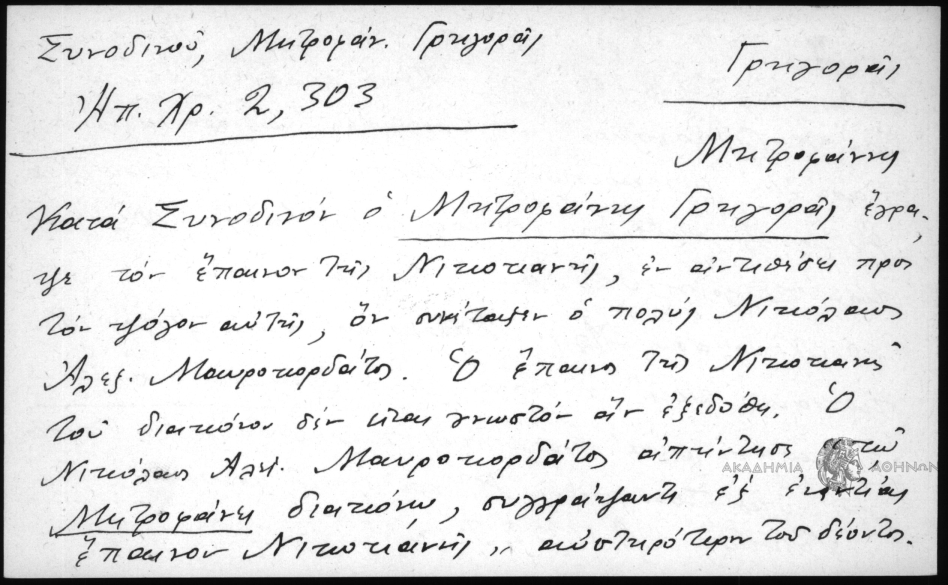 Συνοδινοῦ, Μητροφάν. Γρηγορᾶς
Ἠπ. Χρ. 2, 303
Γρηγορᾶς
Μητροφάνης
Κατά Συνοδινόν ὁ Μητροφάνης Γρηγορᾶς ἔγρα-
ψε τόν ἔπαινον τῆς Νικοτιανῆς, ἐν ἀντιθέσει πρός
τόν ψόγον αὐτῆς, ὅν συνέταξεν ὁ πολύς Νικόλαος
Ἀλεξ. Μαυροκορδᾶτος. Ὁ ἔπαινος τῆς Νικοτιανῆς
τοῦ διακόνου δέν εἶναι γνωστόν ἄν ἐξεδόθη. Ὁ
Νικόλαος Ἀλεξ. Μαυροκορδᾶτος ἀπήντησε τῷ
Μητροφάνει διακόνῳ, συγγράψαντι ἐξ ἐναντίας
ἔπαινον Νικοτιανῆς, " αὐστηρότερον τοῦ δέοντος.
ΑΚΑΔΗΜΙΑ ΑΘΗΝΩΝ